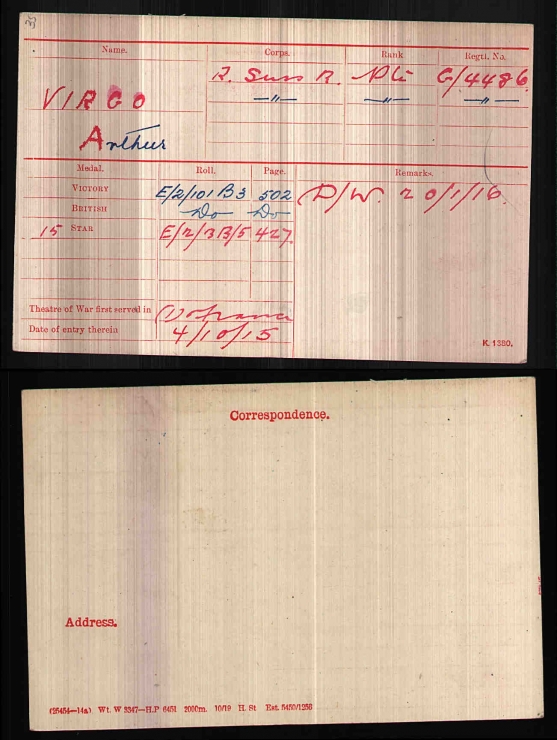 Name. Corps. Rank Regtl. No.
R. Suss R. Pte G/4486
VIRGO —"— —"— —"—
Arthur
Medal. Roll. Page. Remarks.
VICTORY E/2/101 B3 502 D/W. 20/1/16.
BRITISH Do Do
15 STAR E/2/3B/5 427.
Theatre of War first served in (1) France
Date of entry therein 4/10/15
K. 1380.
Correspondence.
Address.
(25454—14a). Wt. W 3347—H.P 6451 2000m. 10/19 H. St Est. 5450/1250